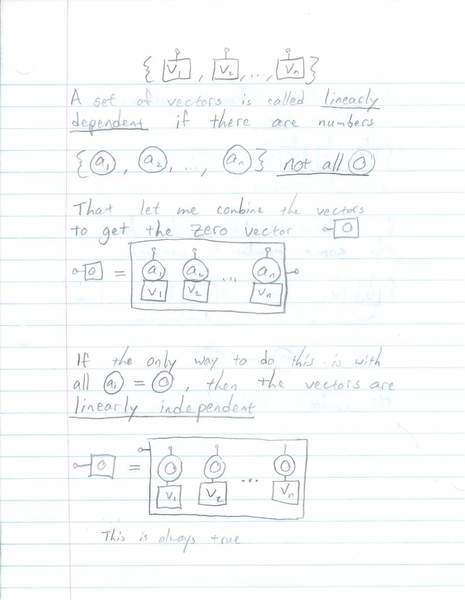 { V1 , V2 , ... , Vn }
A set of vectors is called linearly
dependent if there are numbers
{ a1 , a2 , ... , an } not all 0
That let me conbine the vectors
to get the zero vector 0
0 = a1 a2 ... an
V1 V2 Vn
If the only way to do this is with
all ai = 0 , then the vectors are
linearly independent
0 = 0 0 ... 0
V1 V2 Vn
This is always true